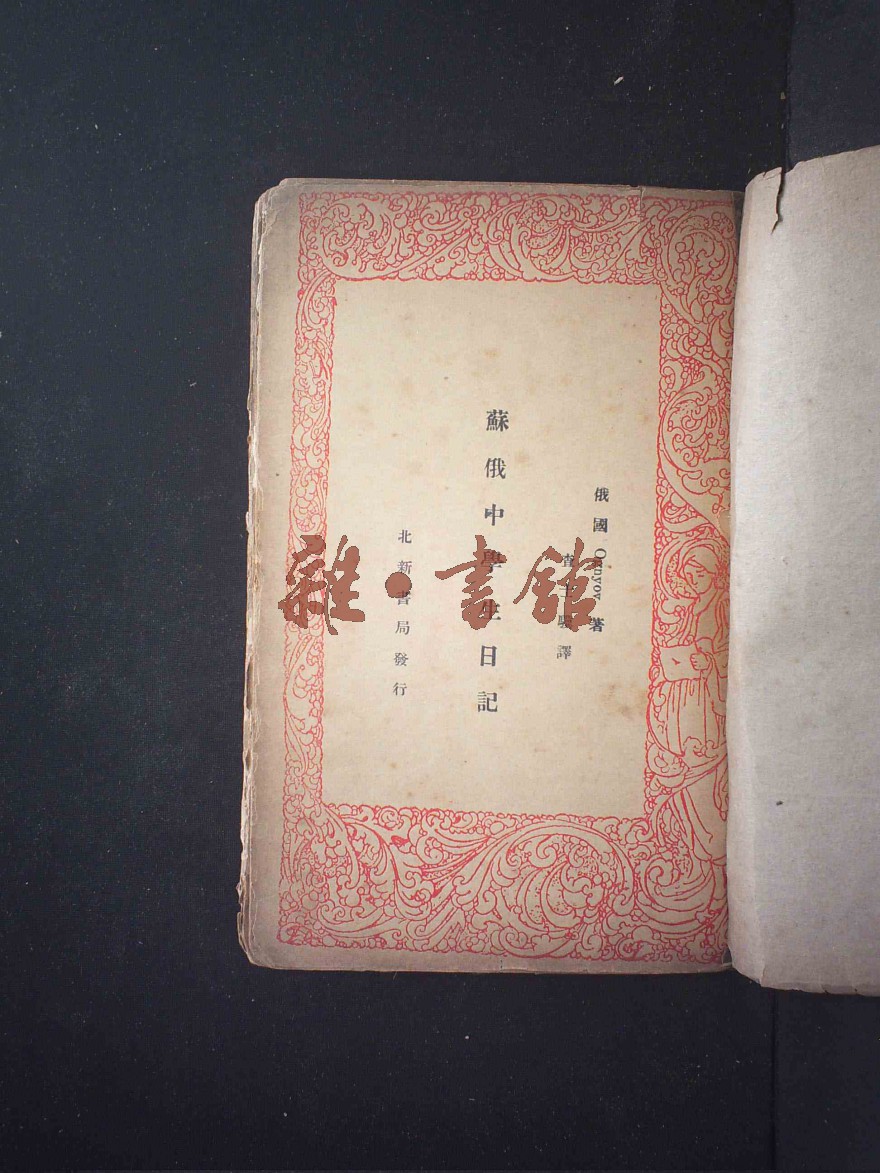 俄國 Ognyov 著
查士驥譯
蘇俄中學生日記
北新書局發行
雜·書館